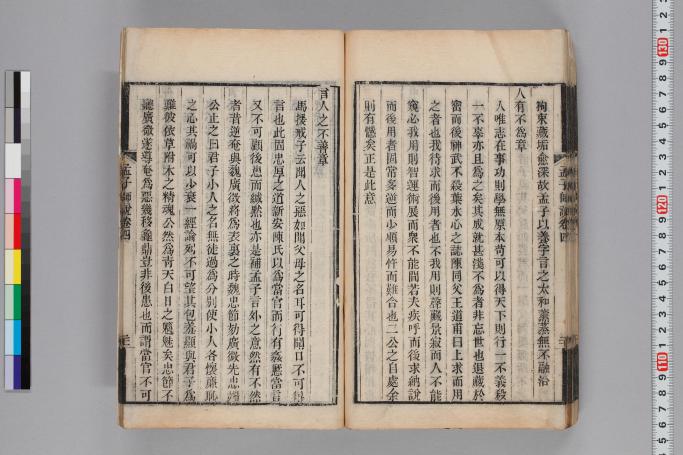 拘束藏垢愈深故孟子以養字言之太和薰蒸無不融洽
人有不爲章
人唯志在事功則學無原本苟可以得天下則行一不義殺
一不辜亦且爲之矣其成就甚淺不爲者非忘世也退藏於
密而後神武不殺葉水心之誌陳同父王道甫曰上求而用
之者也我待求而後用者也不我用則聲藏景寂而人不能
窺必我用則智運術展而衆不能間若夫疾呼而後求納說
而後用者固常多逆而少順易忤而難合也二公之自處余
則有憾矣正是此意
言人之不善章
馬援戒子云聞人之惡如聞父母之名耳可得聞口不可得
言也此固忠厚之道新安陳氏以爲當官而行有姦慝當言
又不可顧後患而緘默也亦是補孟子言外之意然有不然
者昔逆奄與魏廣微將爲表裏之時魏忠節劾廣微先忠端
公止之曰君子小人之名無徒過爲分別使小人各懷廉恥
之心其禍可以少衰一經論列不可望其包羞顧與君子爲
難彼依草附木之精魂公然爲青天白日之魑魅矣忠節不
聽廣微遂專奄爲惡幾移鼎豈非後患也而謂當官不可
孟子師說卷四
孟子師說卷四